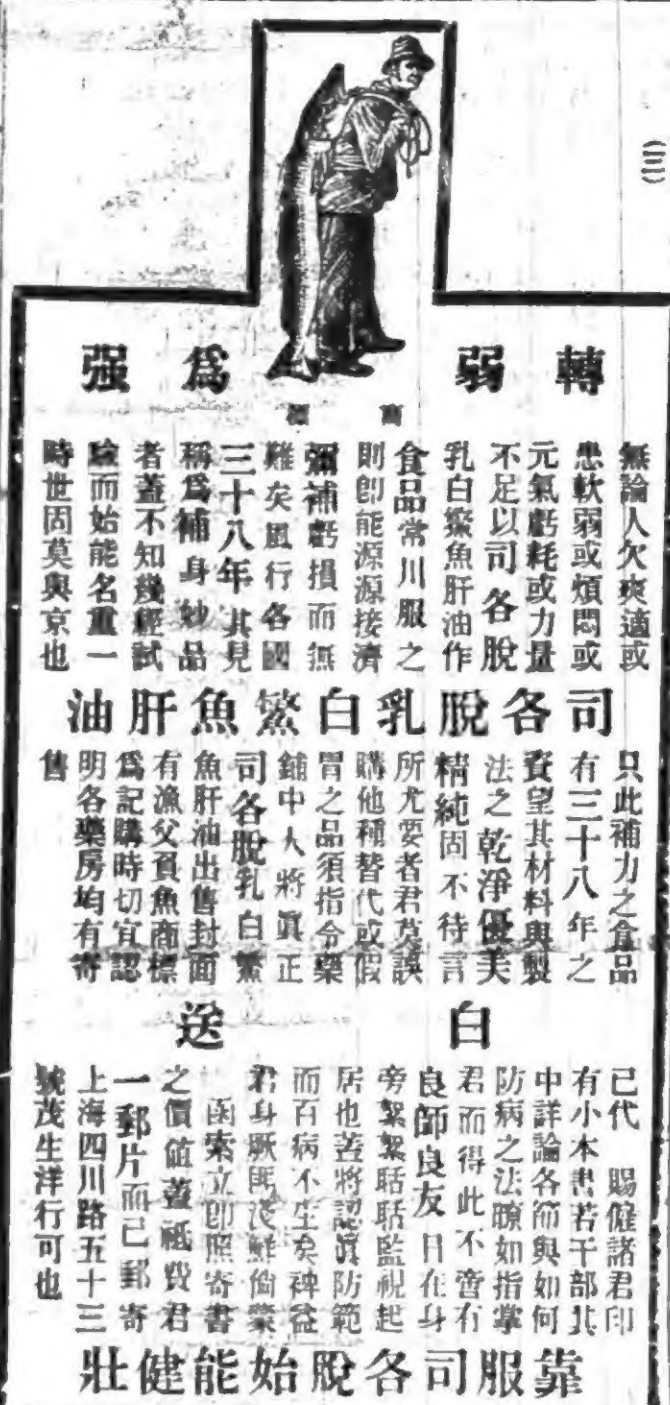 (三)
轉弱爲强
商標
無論人欠爽適或
患軟弱或煩悶或
元氣虧耗或力量
不足以司各脫
乳白鰵魚肝油作
食品常川服之
則卽能源源接濟
彌補虧損而無
難矣風行各國
三十八年其見
稱爲補身妙品
者蓋不知幾經試
驗而始能名重一
時世固莫與京也
司各脫乳白鰵魚肝油
只此補力之食品
有三十八年之
資望其材料與製
法之乾淨優美
精純固不待言
所尤要者君莫誤
購他種替代或假
冒之品須指令藥
鋪中人將眞正
司各脫乳白鰵
魚肝油出售封面
有漁父負魚商標
爲記購時切宜認
明各藥房均有寄
售
白送
己代 賜僱諸君印
有小本書若干部其
中詳論各節與如何
防病之法瞭如指掌
君而得此不啻有
良師良友日在身
旁絮絮聒聒監視起
居也蓋將認眞防範
而百病不生矣裨益
君身厥匪淺鮮倘蒙
函索立卽照寄書
之價値蓋祗費君
一郵片而已郵寄
上海四川路五十三
號茂生洋行可也
靠服司各脫始能健壯